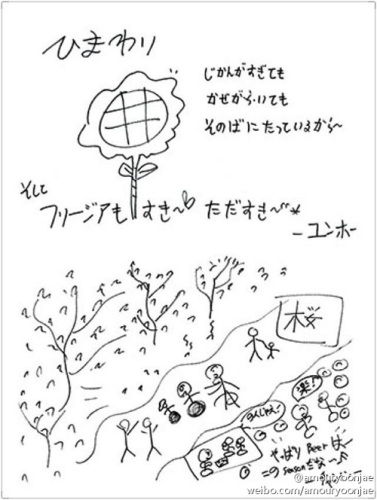 ひまわり
じかんがすぎても
かぜがふいても
そのばにたっているから〜
そして
フリージアもすき〜 ただすき〜*
ーユンホー
桜
楽!
のんじゃえ!
やっぱり Beerは〜
この seasonだな〜
@amouryoonjae
weibo.com/amouryoonjae